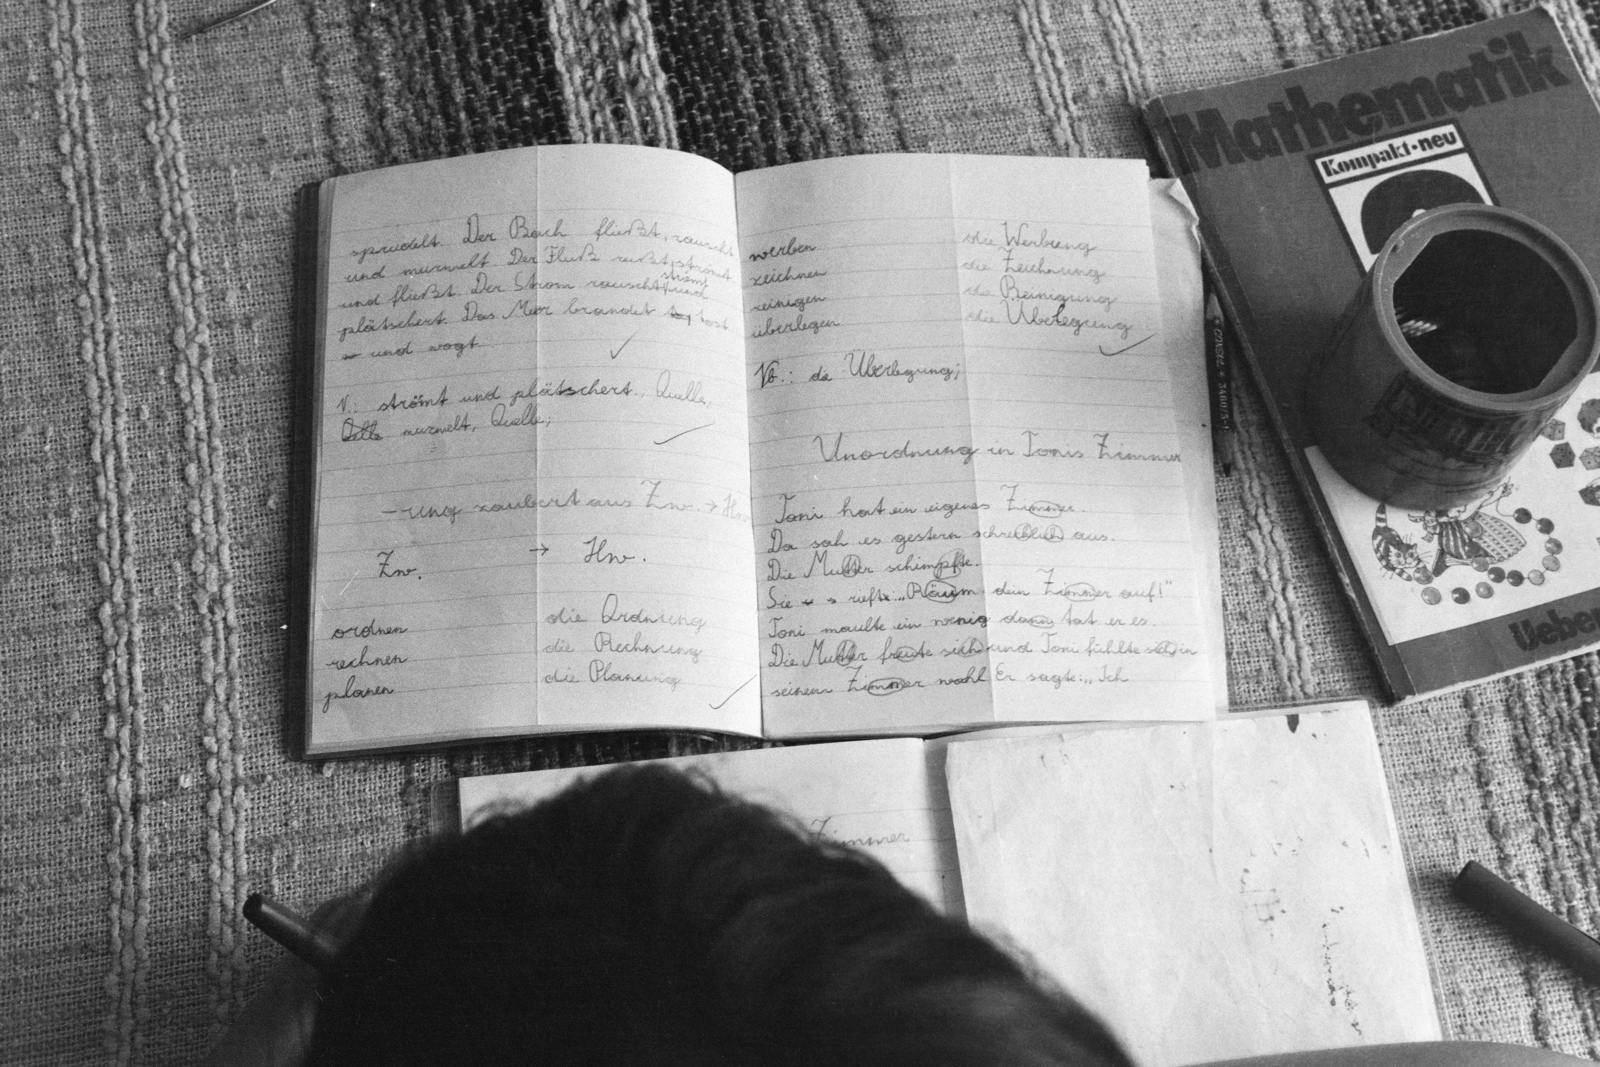 sprudelt. Der Bach fließt, rauscht
und murmelt. Der Fluß reißt, strömt
und fließt. Der Strom rauscht, strömt und
plätschert. Das Meer brandet, tost
und wogt.
V.: strömt und plätschert., Quelle,
murmelt, Quelle;
-ung zaubert aus Zw. → Hw
Zw. → Hw.
ordnen die Ordnung
rechnen die Rechnung
planen die Planung
werben die Werbung
zeichnen die Zeichnung
reinigen die Reinigung
überlegen die Überlegung
Vb.: die Überlegung;
Unordnung in Tonis Zimmer
Toni hat ein eigenes Zimmer.
Da sah es gestern schrecklich aus.
Die Mutter schimpfte.
Sie rief: „Räum dein Zimmer auf!"
Toni maulte ein wenig dann tat er es.
Die Mutter freute sich und Toni fühlte sich in
seinem Zimmer wohl. Er sagte: „Ich
Zimmer
Mathematik
Kompakt·neu